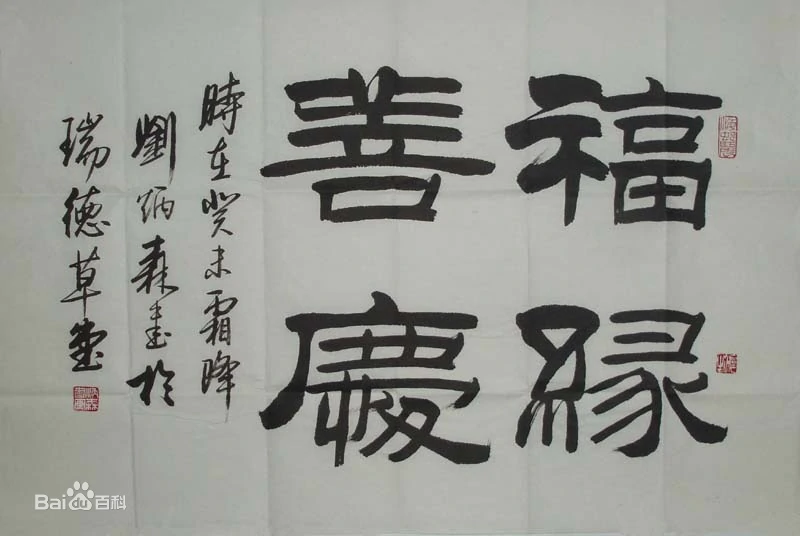 福緣
善慶
時在癸未霜降
劉炳森書於
瑞德草堂
Bai du 百科